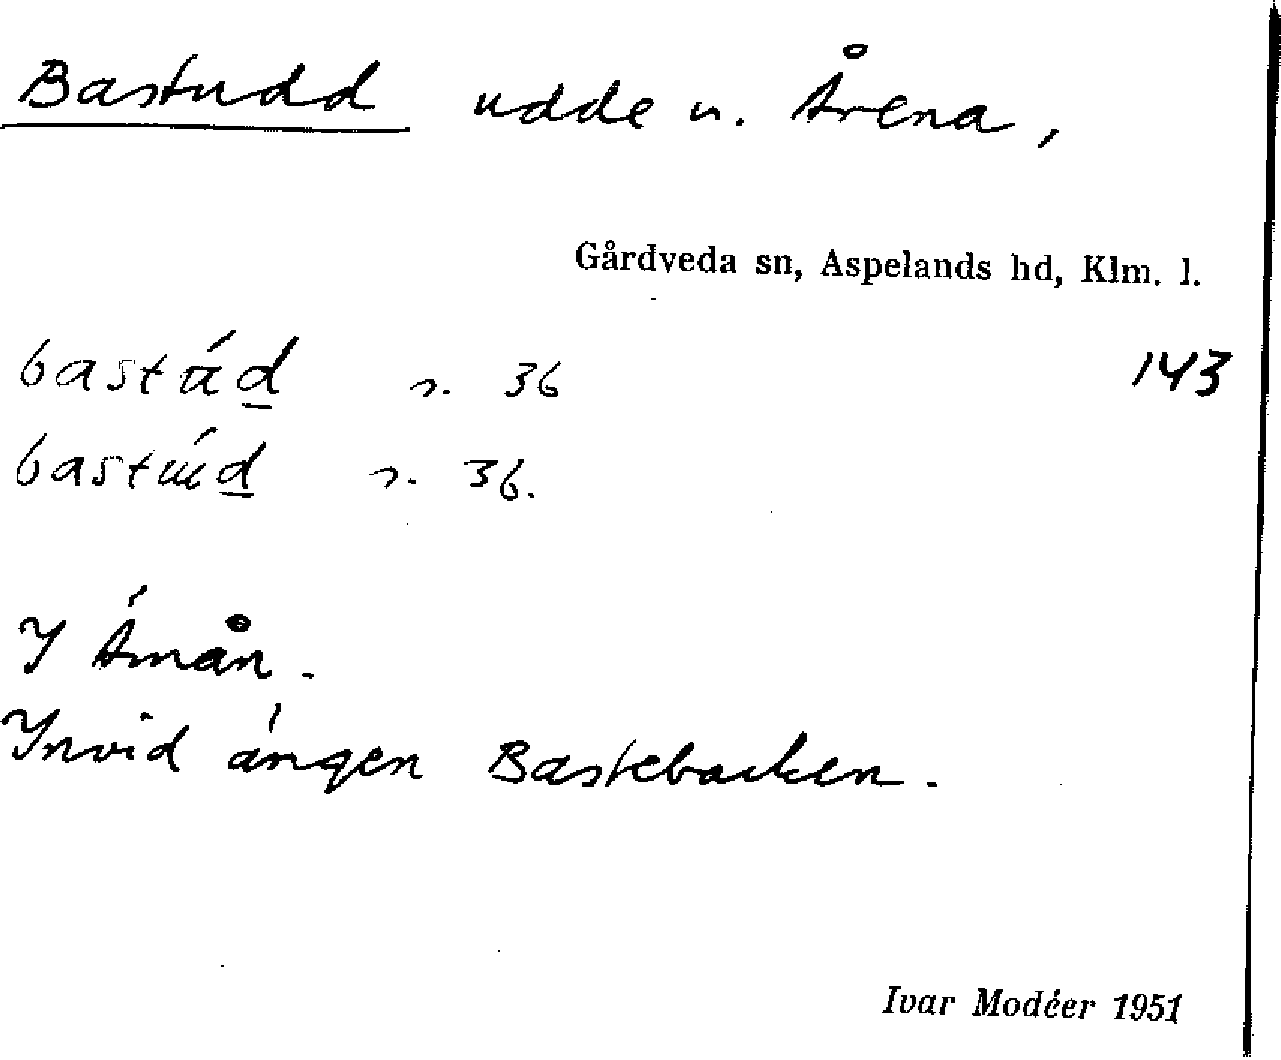 Bastudd udde u. Årena,
Gårdveda sn, Aspelands hd, Klm. l.
143
n. 36
n. 36.
I Ämån.
Invid ängen Bastebacken.
Ivar Modéer 1951